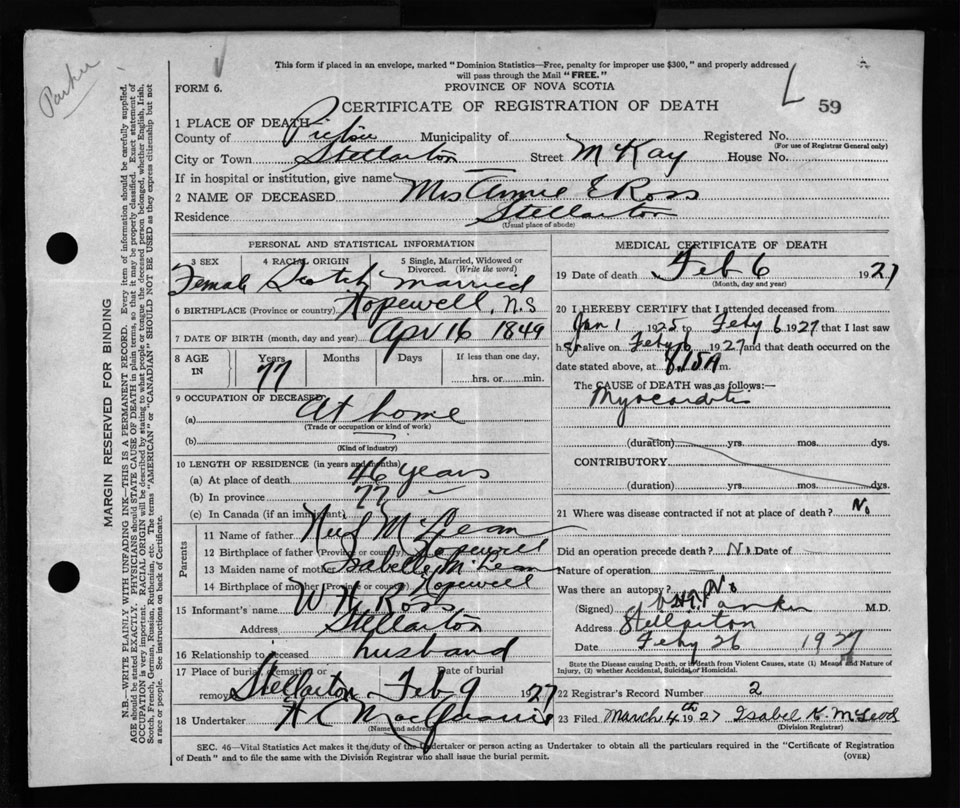 Parker
This form if placed in an envelope, marked "Dominion Statistics—Free, penalty for improper use $300," and properly addressed
will pass through the Mail "FREE."
FORM 6.
PROVINCE OF NOVA SCOTIA
CERTIFICATE OF REGISTRATION OF DEATH
L 59
1 PLACE OF DEATH
County of Pictou Municipality of Registered No.
(For use of Registrar General only)
City or Town Stellarton Street McKay House No.
If in hospital or institution, give name
2 NAME OF DECEASED Mrs Annie E Ross
Residence Stellarton
(Usual place of abode)
PERSONAL AND STATISTICAL INFORMATION
3 SEX 4 RACIAL ORIGIN 5 Single, Married, Widowed or Divorced. (Write the word)
Female Scotch married
6 BIRTHPLACE (Province or country) Hopewell, N.S
7 DATE OF BIRTH (month, day and year) Apr 16 1849
8 AGE IN Years Months Days If less than one day,
77 hrs. or min.
9 OCCUPATION OF DECEASED
(a) At home
(Trade or occupation or kind of work)
(b)
(Kind of industry)
10 LENGTH OF RESIDENCE (in years and months)
(a) At place of death 46 years
(b) In province 77 —
(c) In Canada (if an immigrant)
Parents
11 Name of father Neil McLean
12 Birthplace of father (Province or country) Hopewell
13 Maiden name of mother Isabelle McLean
14 Birthplace of mother (Province or country) Hopewell
15 Informant's name W H Ross
Address Stellarton
16 Relationship to deceased husband
17 Place of burial, cremation or removal Date of burial
Stellarton Feb 9 1927
18 Undertaker
(Name and address)
MEDICAL CERTIFICATE OF DEATH
19 Date of death Feb 6 1927
(Month, day and year)
20 I HEREBY CERTIFY that I attended deceased from
Jan 1 1925 to Feby 6 1927 that I last saw
her alive on Feby 6 1927 and that death occurred on the
date stated above, at
The CAUSE of DEATH was as follows:—
Myocarditis
(duration) yrs. mos. dys.
CONTRIBUTORY
(duration) yrs. mos. dys.
21 Where was disease contracted if not at place of death? No
Did an operation precede death? No Date of
Nature of operation
Was there an autopsy? No
(Signed) Parker M.D.
Address Stellarton
Date Feby 26 1927
State the Disease causing Death, or in death from Violent Causes, state (1) Means and Nature of
Injury, (2) whether Accidental, Suicidal or Homicidal.
22 Registrar's Record Number 2
23 Filed March 4th 1927 Isabel K. McLeod
(Division Registrar)
SEC. 46—Vital Statistics Act makes it the duty of the Undertaker or person acting as Undertaker to obtain all the particulars required in the "Certificate of Registration
of Death" and to file the same with the Division Registrar who shall issue the burial permit.
(OVER)
MARGIN RESERVED FOR BINDING
N.B.—WRITE PLAINLY WITH UNFADING INK—THIS IS A PERMANENT RECORD. Every item of information should be carefully supplied.
AGE should be stated EXACTLY. PHYSICIANS should STATE CAUSE OF DEATH in plain terms, so that it may be properly classified. Exact statement of
OCCUPATION is very important. RACIAL ORIGIN will be described by stating to what people or tongue the deceased person belonged, whether English, Irish,
Scotch, French, German, Russian, Ruthenian, etc. The terms "AMERICAN" or "CANADIAN" SHOULD NOT BE USED as they express citizenship but not
a race or people. See instructions on back of Certificate.